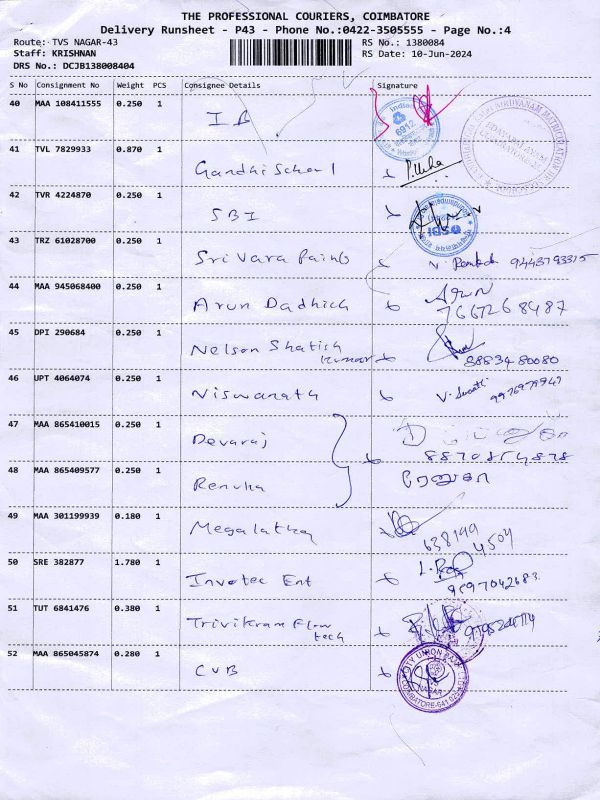 THE PROFESSIONAL COURIERS, COIMBATORE
Delivery Runsheet - P43 - Phone No.:0422-3505555 - Page No.:4
Route: TVS NAGAR-43 RS No.: 1380084
Staff: KRISHNAN RS Date: 10-Jun-2024
DRS No.: DCJB138008404
S No Consignment No Weight PCS Consignee Details Signature
40 MAA 108411555 0.250 1
I B
41 TVL 7829933 0.870 1
Gandhi School P. Usha
42 TVR 4224870 0.250 1
SBI SBI
43 TRZ 61028700 0.250 1
Sri Vara Paints
44 MAA 945068400 0.250 1
Arun Dadhich Arun
7667268487
45 DPI 290684 0.250 1
Nelson Shatish
Kumar 8883480080
46 UPT 4064074 0.250 1
Niswanath
47 MAA 865410015 0.250 1
Devaraj
48 MAA 865409577 0.250 1
Renuka ரேணுகா
49 MAA 301199939 0.180 1
Megalatha 638199
4504
50 SRE 382877 1.780 1
Invotec Ent
51 TUT 6841476 0.380 1
Trivikram Flow
tech
52 MAA 865045874 0.280 1
CUB CITY UNION BANK